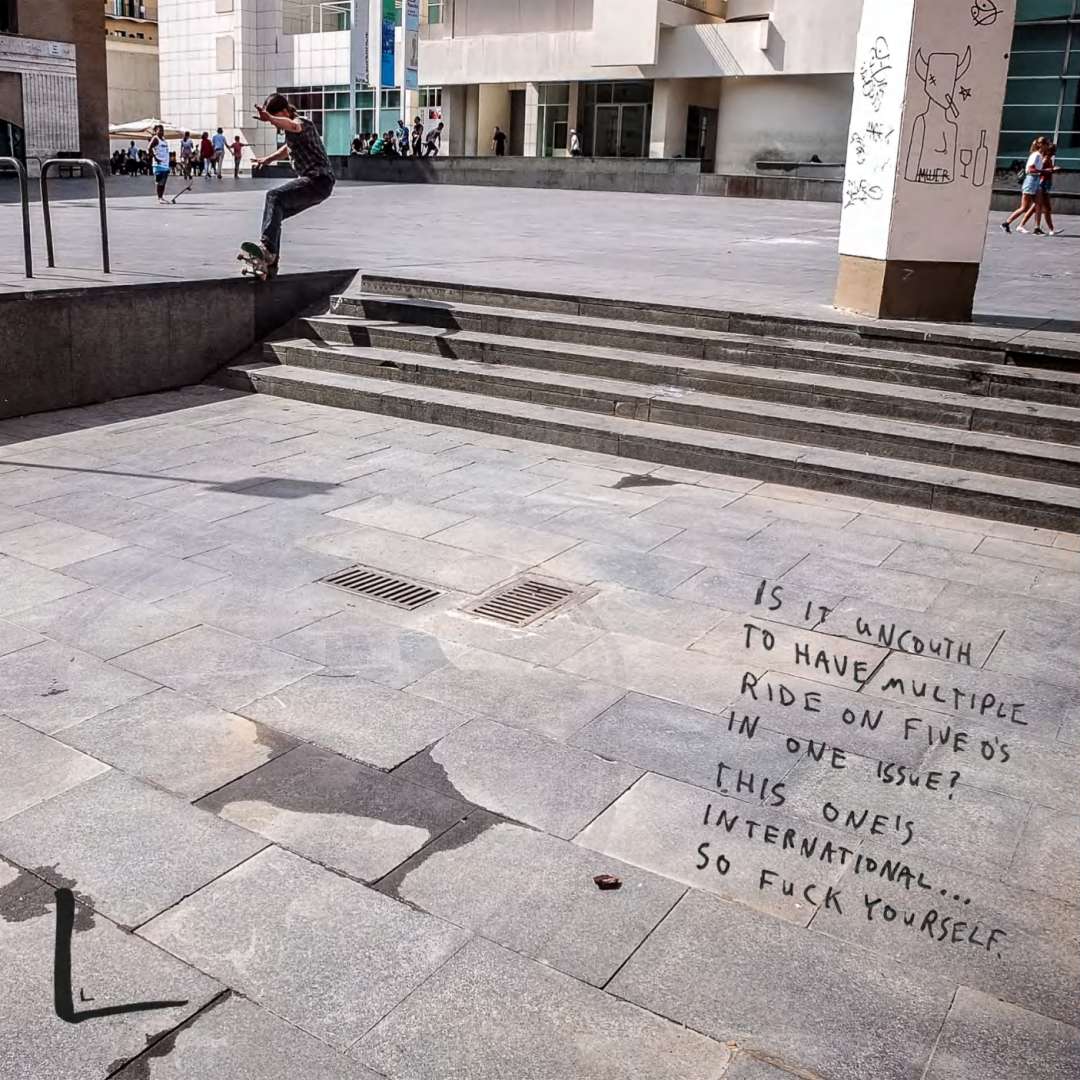 MWER
IS IT UNCOUTH
TO HAVE MULTIPLE
RIDE ON FIVE O'S
IN ONE ISSUE?
THIS ONE'S
INTERNATIONAL...
SO FUCK YOURSELF.
L
L